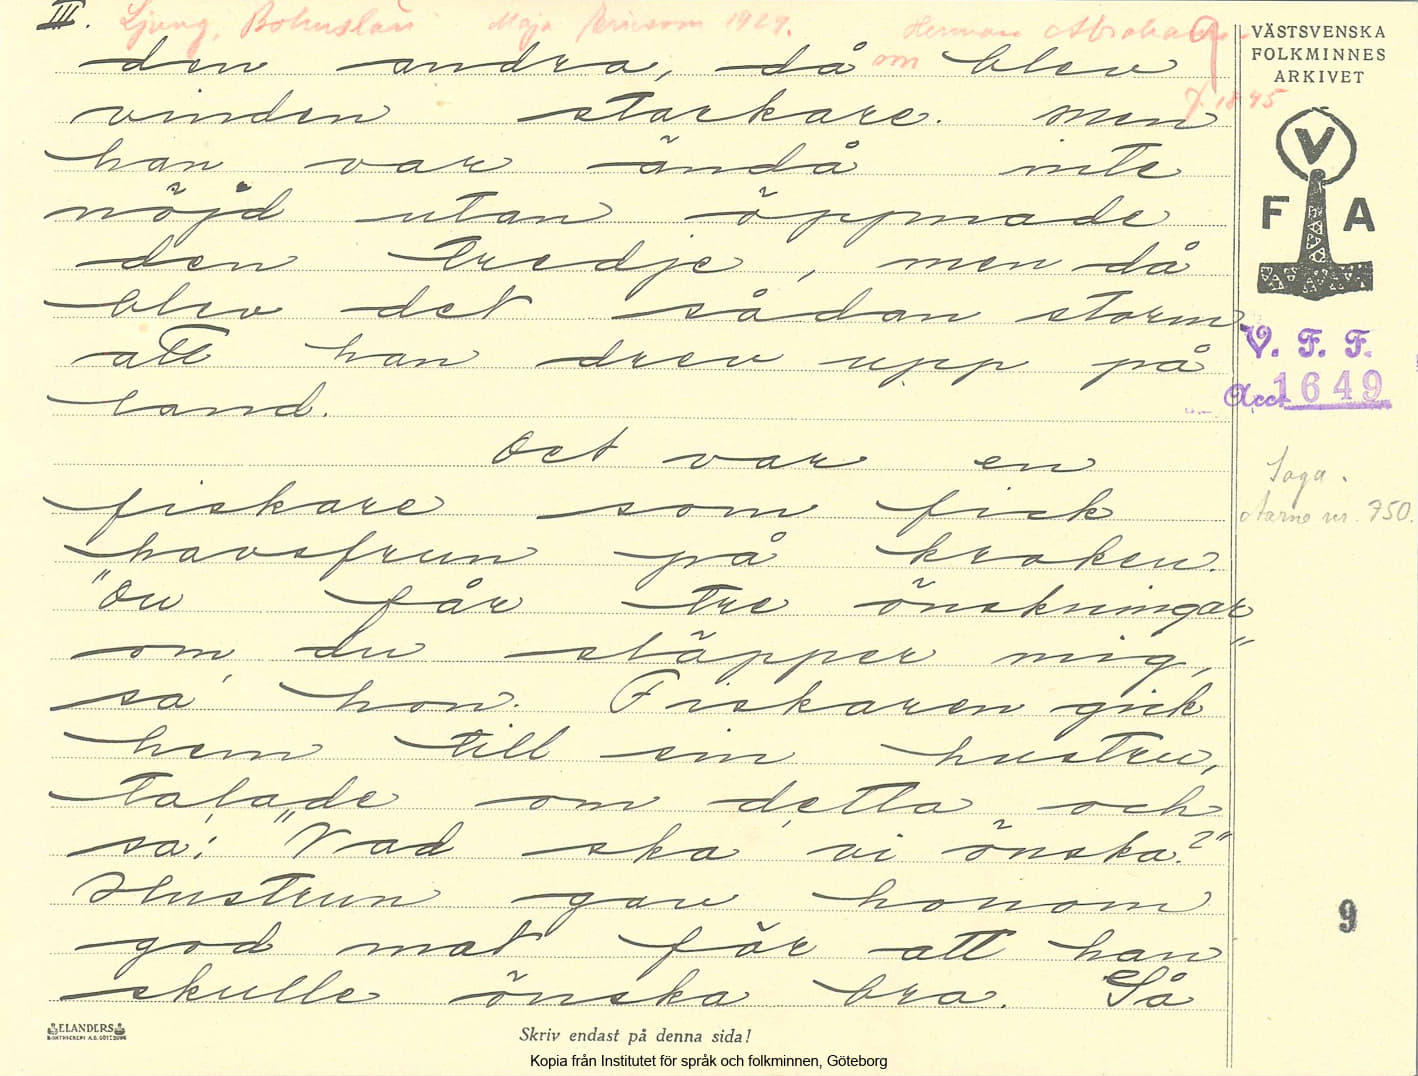 III. Ljung, Bohuslän Maja Ericson 1929. Herman Abrahamsson
f. 1845
9
den andra, då blev
vinden starkare. Men
han var ändå inte
nöjd utan öppnade
den tredje, men då
blev det sådan storm
att han drev upp på
land.
Det var en
fiskare som fick
havsfrun på kroken.
"Du får tre önskningar
om du släpper mig,"
sa' hon. Fiskaren gick
hem till sin hustru,
talade om detta och
sa: "Vad ska vi önska?"
Hustrun gav honom
god mat för att han
skulle önska bra. Så
VÄSTSVENSKA
FOLKMINNES
ARKIVET
V
F A
V. F. F.
Acc. 1649
Saga.
Aarne nr. 750.
9
ELANDERS
BOKTRYCKERI A.B. GÖTEBORG
Skriv endast på denna sida!
Kopia från Institutet för språk och folkminnen, Göteborg